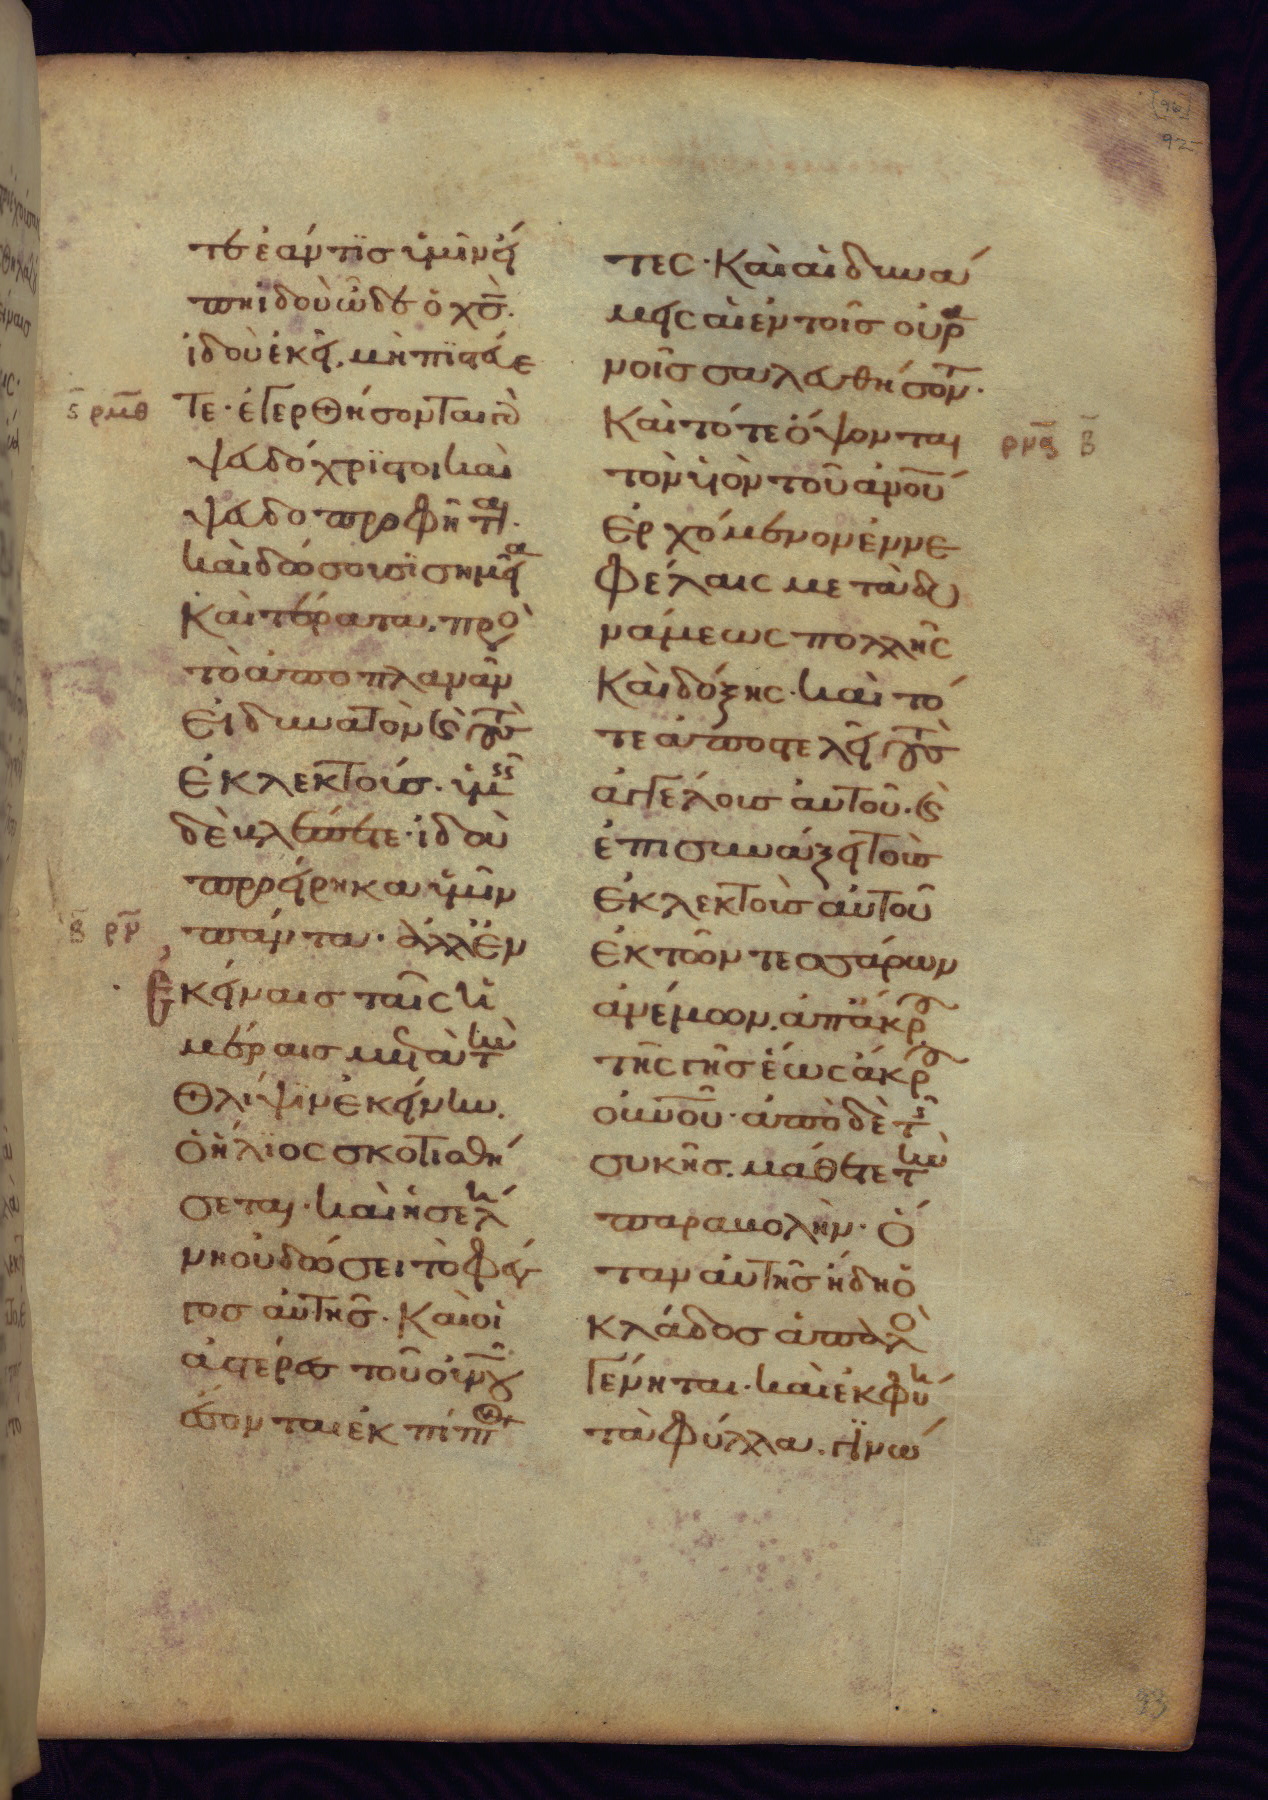 [96]
92
τε ἐάν τις ὑμῖν εἴ
πη ἰδοὺ ὧδε ὁ χ̅ς̅.
ἰδοὺ ἐκεῖ. μὴ πιστεύε
τε· ἐγερθήσονται γὰρ
ψευδόχριστοι καὶ
ψευδοπροφῆται·
καὶ δώσουσι σημεῖα
καὶ τέρατα. πρὸς
τὸ ἀποπλανᾶν
εἰ δυνατὸν καὶ τοὺς
ἐκλεκτούς. ὑμεῖς
δὲ βλέπετε· ἰδοὺ
προείρηκα ὑμῖν
πάντα. ἀλλ' ἐν
ἐκείναις ταῖς ἡ
μέραις μετὰ τὴν
θλίψιν ἐκείνην.
ὁ ἥλιος σκοτισθή
σεται· καὶ ἡ σελή
νη οὐ δώσει τὸ φέγ
γος αὐτῆς. καὶ οἱ
ἀστέρες τοῦ οὐνου
ἔσονται ἐκπίπτον
ς̅ ρμ̅θ
β̅ ρν̅
τες· καὶ αἱ δυνά
μεις αἱ ἐν τοῖς οὐρα
νοῖς σαλευθήσονται·
καὶ τότε ὄψονται
τὸν υἱὸν τοῦ ἀνου
ἐρχόμενον ἐν νε
φέλαις μετὰ δυ
νάμεως πολλῆς
καὶ δόξης· καὶ τό
τε ἀποστελεῖ τοὺς
ἀγγέλους αὐτοῦ. καὶ
ἐπισυνάξει τοὺς
ἐκλεκτοὺς αὐτοῦ
ἐκ τῶν τεσσάρων
ἀνέμων. ἀπ' ἄκρου
τῆς γῆς ἕως ἄκρου
οὐνοῦ· ἀπὸ δὲ τῆς
συκῆς. μάθετε τὴν
παραβολὴν· ὅ
ταν αὐτῆς ἤδη ὁ
κλάδος ἁπαλὸς
γένηται· καὶ ἐκφύη
τὰ φύλλα. γινώ
ρν̅α β̅
93